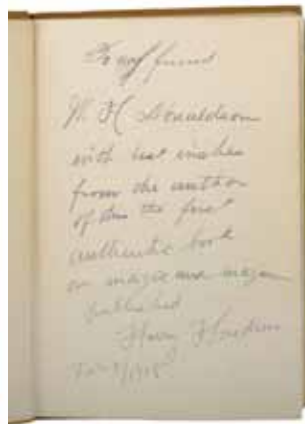 To my friend
W. H. Donaldson
with best wishes
from the author
of this the first
authentic book
on magic and
published
Harry Houdini